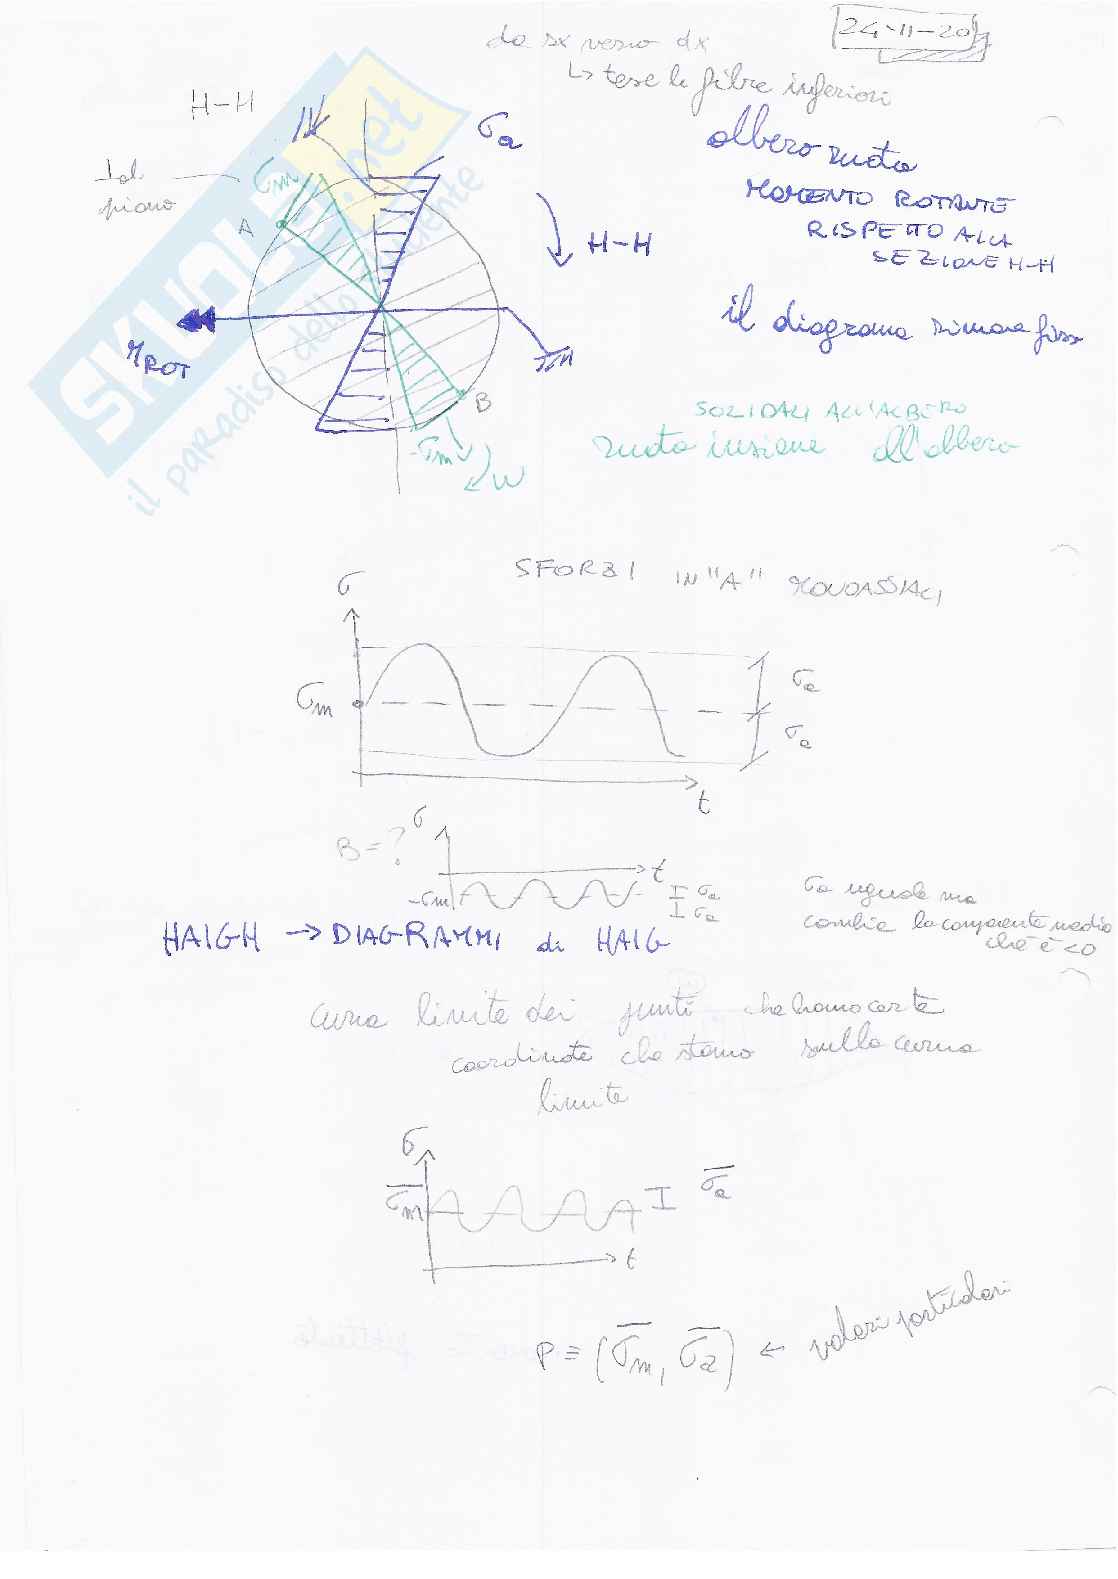 24-11-20
da sx verso dx
↳ tese le fibre inferiori
H-H
σa
albero ruota
MOMENTO ROTANTE
RISPETTO ALLA
SEZIONE H-H
⊥ al
piano
σm
A
H-H
il diagrama rimane fisso
MROT
B
SOLIDALI ALL'ALBERO
ruota insieme all'albero
-σm
W
SKUOLA.net
il paradiso dello studente
SFORZI IN "A" MONOASSIALI
σ
σm
σa
σa
t
B = ?
σ
t
-σm
σa
σa
σa uguale ma
cambia la componente media
che è <0
HAIGH → DIAGRAMMI di HAIG
curva limite dei punti che hanno certe
coordinate che stanno sulla curva
limite
σ
σ̅m
σ̅a
t
P ≡ (σ̅m, σ̅a) ← valori particolari